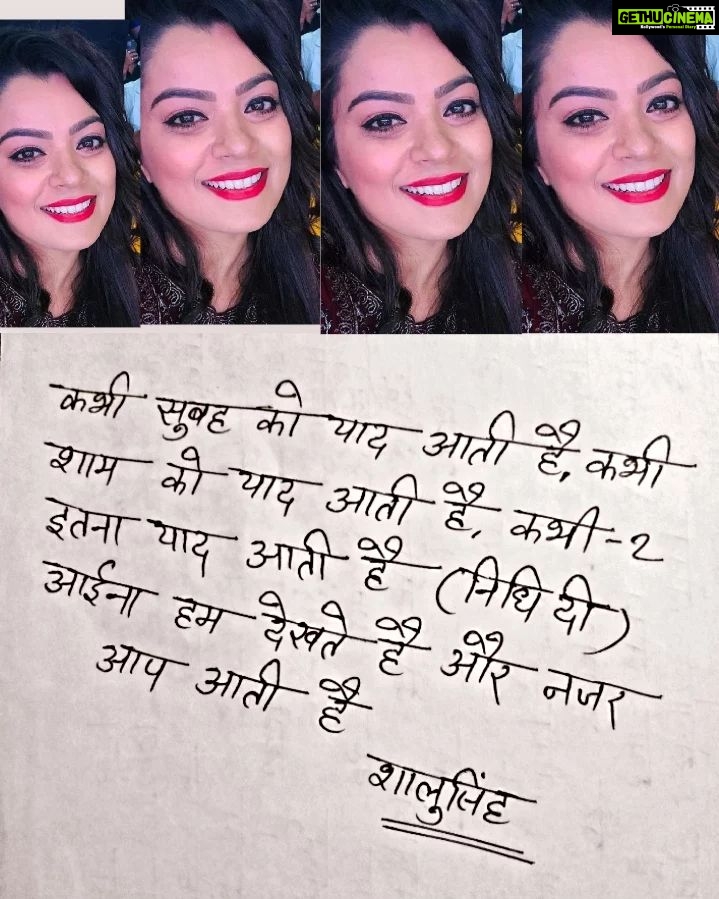 GETHU CINEMA
Bollywood's Personal Diary
कभी सुबह को याद आती है, कभी
शाम को याद आती है, कभी-2
इतना याद आती है (निधि दी)
आईना हम देखते है और नजर
आप आती है
शालुसिंह